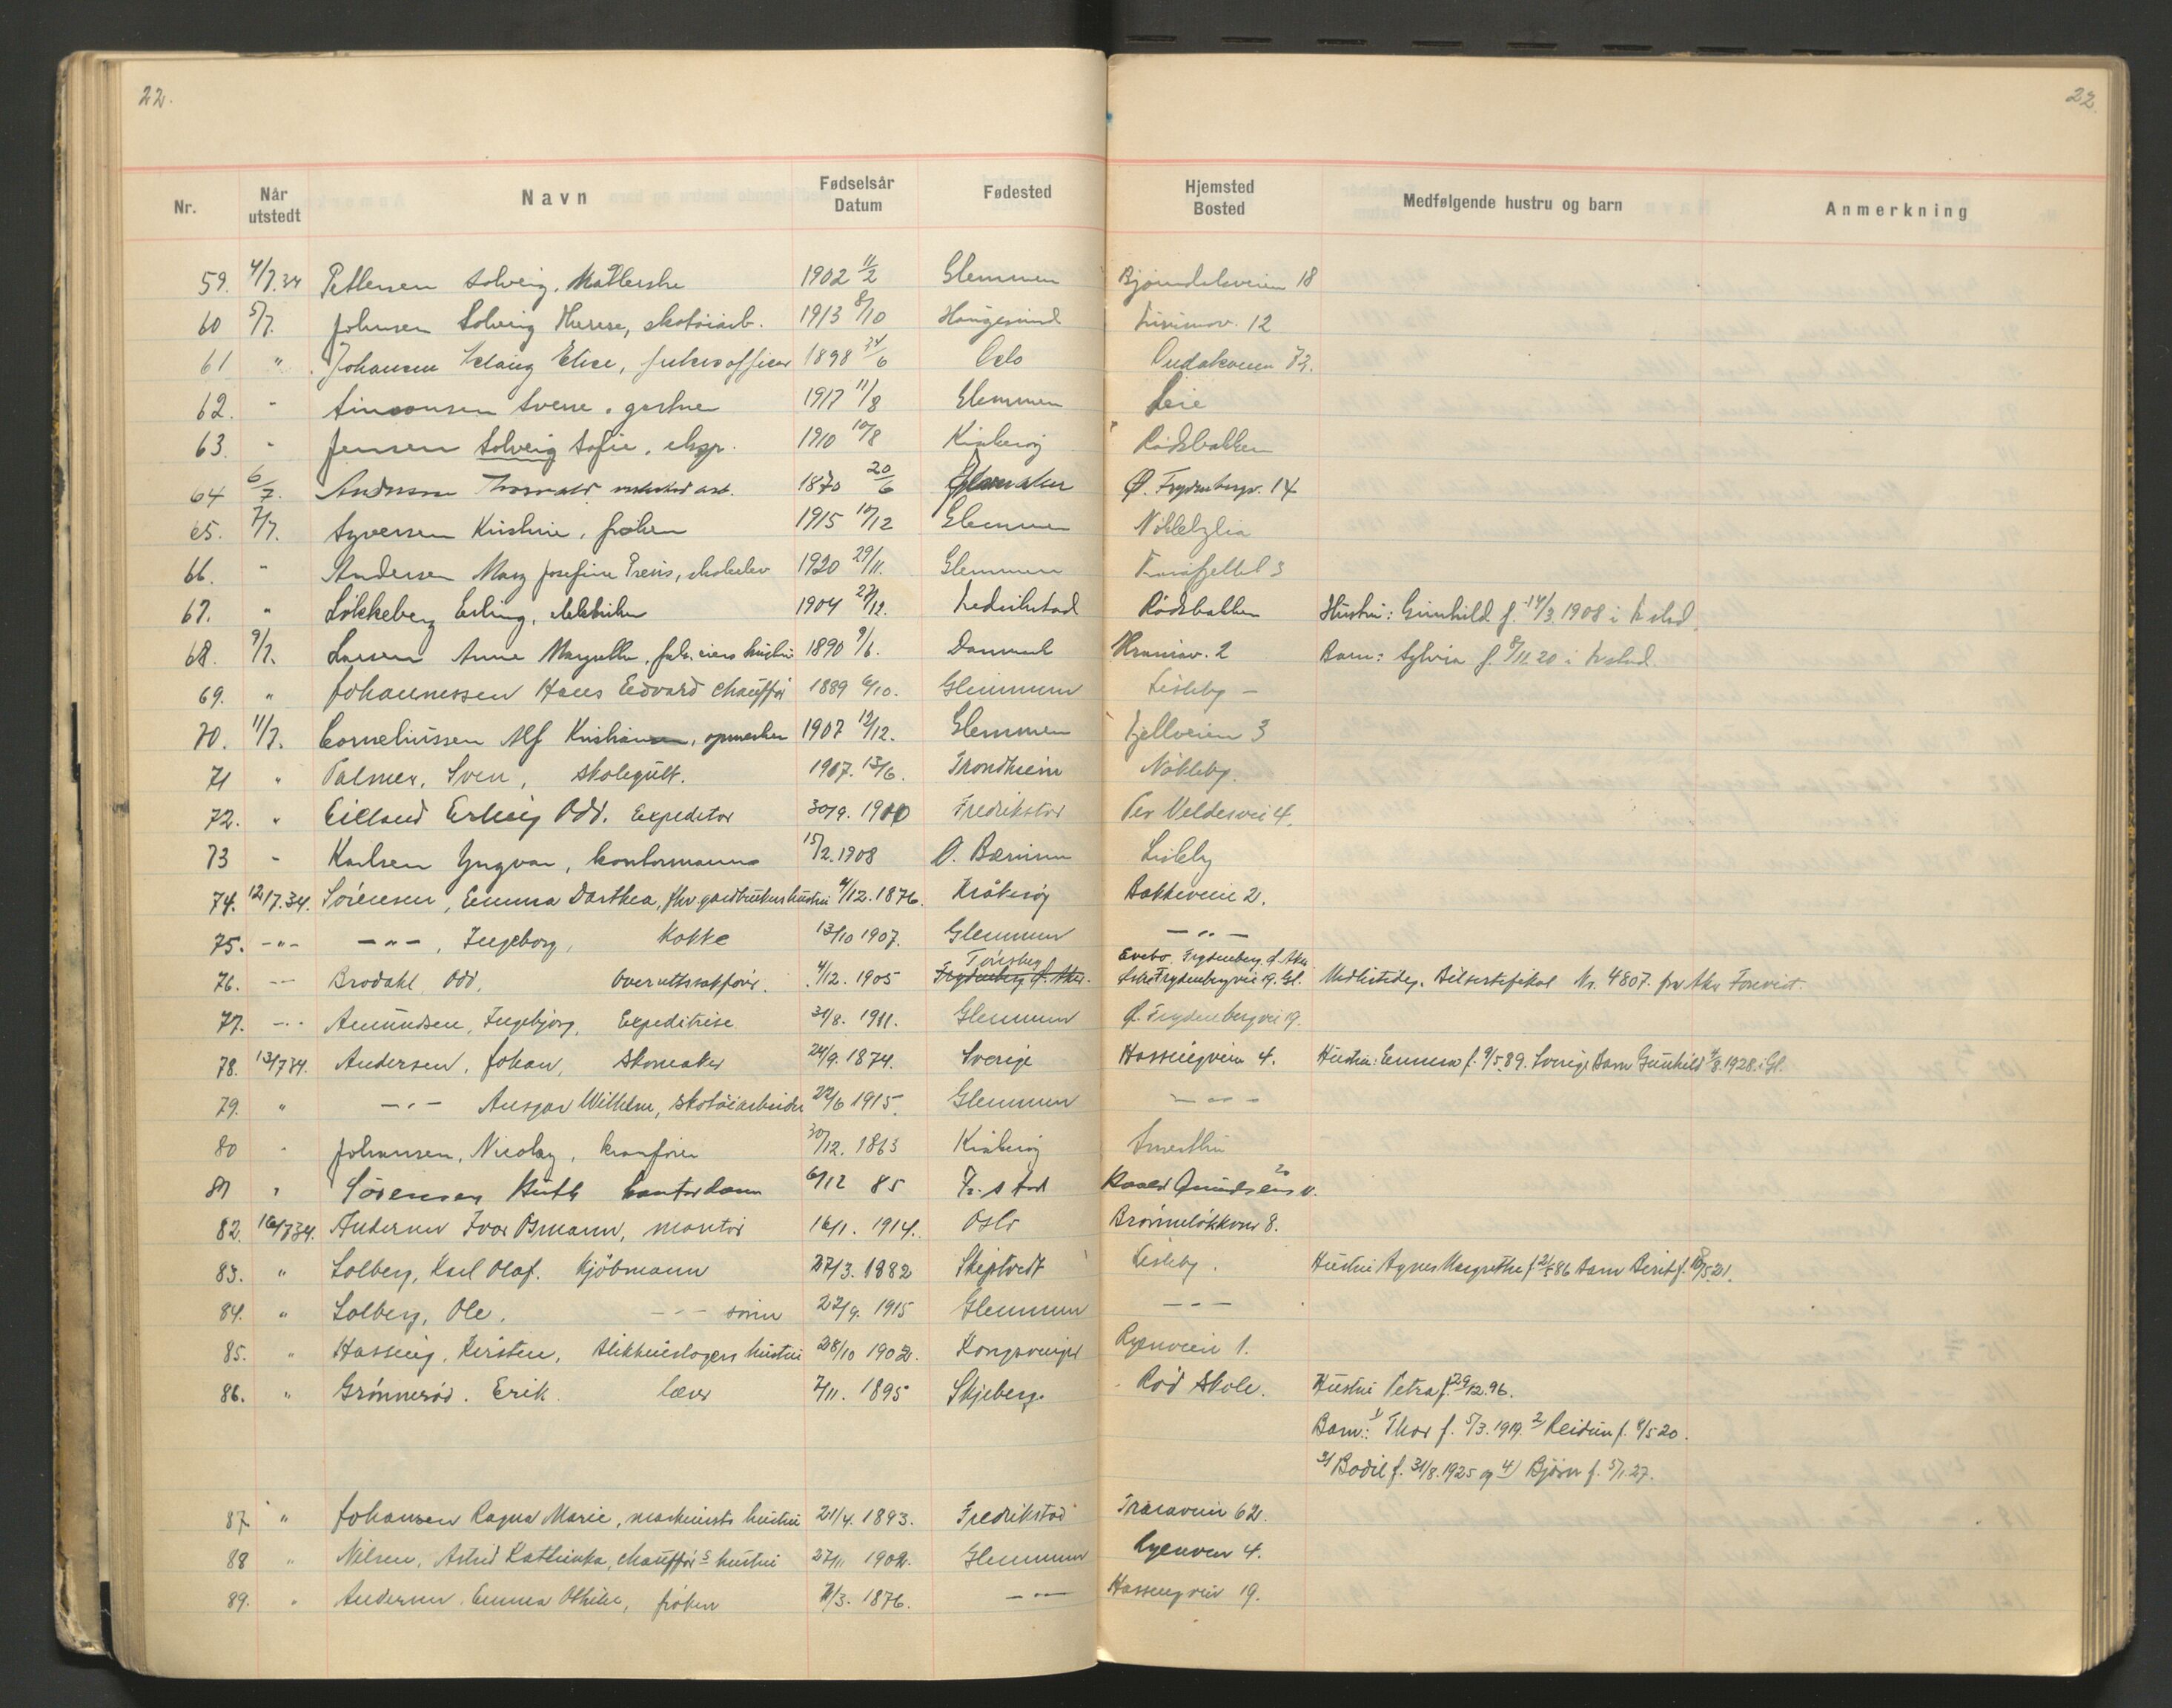 22.
22.
Nr. Når utstedt Navn Fødselsår Datum Fødested Hjemsted Bosted Medfølgende hustru og barn Anmerkning
59. 4/7.34 Pettersen Solveig, 1902 11/2 Glemmen 18
60 5/7. Johnsen Solveig Therese, skotøiarb. 1913 8/10 Haugesund 12
61 " Johansen Elise, 1898 24/6 Oslo
62. " Simonsen Sverre, gartner 1917 11/8 Glemmen Leie
63. " Jensen Solveig Sofie, eksp. 1910 10/8 Kråkerøy Rødsbakken
64 6/7. Andersen Thorvald 1870 20/6 Ø. Frydenbergv. 14
65. 7/7. Syversen Kristine, frøken 1915 10/12 Glemmen
66. " Andersen Mary Josefine 1920 29/11. Glemmen Trarafjellet 3
67. " Løkkeberg Erling, elektriker 1904 27/12. Fredrikstad Rødsbakken Hustru: Gunhild f. 14/3 1908 i Fr.stad
68. 9/7. Larsen Anne Margrethe, 1890 9/6. Danmark 2 Barn: Sylvia f. 8/11.20 i Fr.stad.
69. " Johannessen Hans Edvard chauffør 1889 6/10. Glemmen Lisleby –
70. 11/7. Corneliussen Alf Kristian, opmerker 1907 12/12. Glemmen Fjellveien 3
71 " Palmer, Sven, skolegutt. 1917. 13/6. Trondheim Nøkleby.
72. " Eilland Erling Odd. Expeditør 30/9. 1910 Fredrikstad Per Veldesvei 4.
73 " Karlsen Yngvar, kontormann 15/2. 1908 Ø. Bærum Lisleby
74. 12/7.34. Sörensen, Emma Dorthea, fhv. gardbrukers hustru 4/12. 1876. Kråkerøy Bakkeveien 2.
75. –"– –"–, Ingeborg, Kokke 13/10 1907. Glemmen –"–
Tönsberg Frydenberg Ø. Aker
76. –"– Brodahl, Odd, Overrettssakfører. 4/12. 1905 Frydenberg Ø. Aker. Frydenbergvei 19. Gl. Nr. 4807.
77. –"– Amundsen, Ingebjörg, Expeditrise 31/8. 1911. Glemmen Ø. Frydenbergvei 19.
78. 13/7 34. Andersen, Johan, Skomaker 24/9. 1874. Sverige Hassingveien 4. Hustru: Emma f. 9/5.89. Sverige Barn Gunhild 4/8.1928. i Gl.
79. " –"– Ansgar Wilhelm, skotøiarbeider 22/6 1915. Glemmen –"–
80 " Johansen, Nicolay, kranfører 30/12. 1863 Kråkerøy Smertu
81 " Sörensen Ruth kontordame 6/12 85 Fr.stad Roald Amundsens v. 20
82. 16/7 34. Andersen Ivar Osmann, montör 16/1. 1914. Oslo Brönnelökkvn 8.
83. " Solberg, Karl Olaf. Kjöbmann 27/3. 1882 Skiptvedt Lisleby. Hustru Agnes Margrethe f. 86 Barn Berit f. 18/5 21.
84. " Solberg, Ole. –"– sönn 22/9. 1915 Glemmen –"–
85. " Hassing, Kirsten, blikkenslagers hustru 28/10 1902. Kongsvinger Ryenveien 1.
86. " Grönneröd. Erik. lærer 7/11. 1895 Skjeberg. Röd Skole. Hustru Petra f. 29/12.96.
Barn: 1/ Thor f. 5/3. 1919. 2/ Reidun f. 8/5 20.
3/ Bodil f. 31/8.1925 og 4) Björn f. 5/1.27.
87. " Johansen Ragna Marie, maskinists hustru 21/4. 1893. Fredrikstad Traraveien 62.
88 " Nilsen, Astrid Kathinka, chaufförs hustru 27/11 1902. Glemmen Ryenveien 4.
89. " Andersen. Emma Othilie, fröken 7/3. 1876. –"– Hassingveien 19.